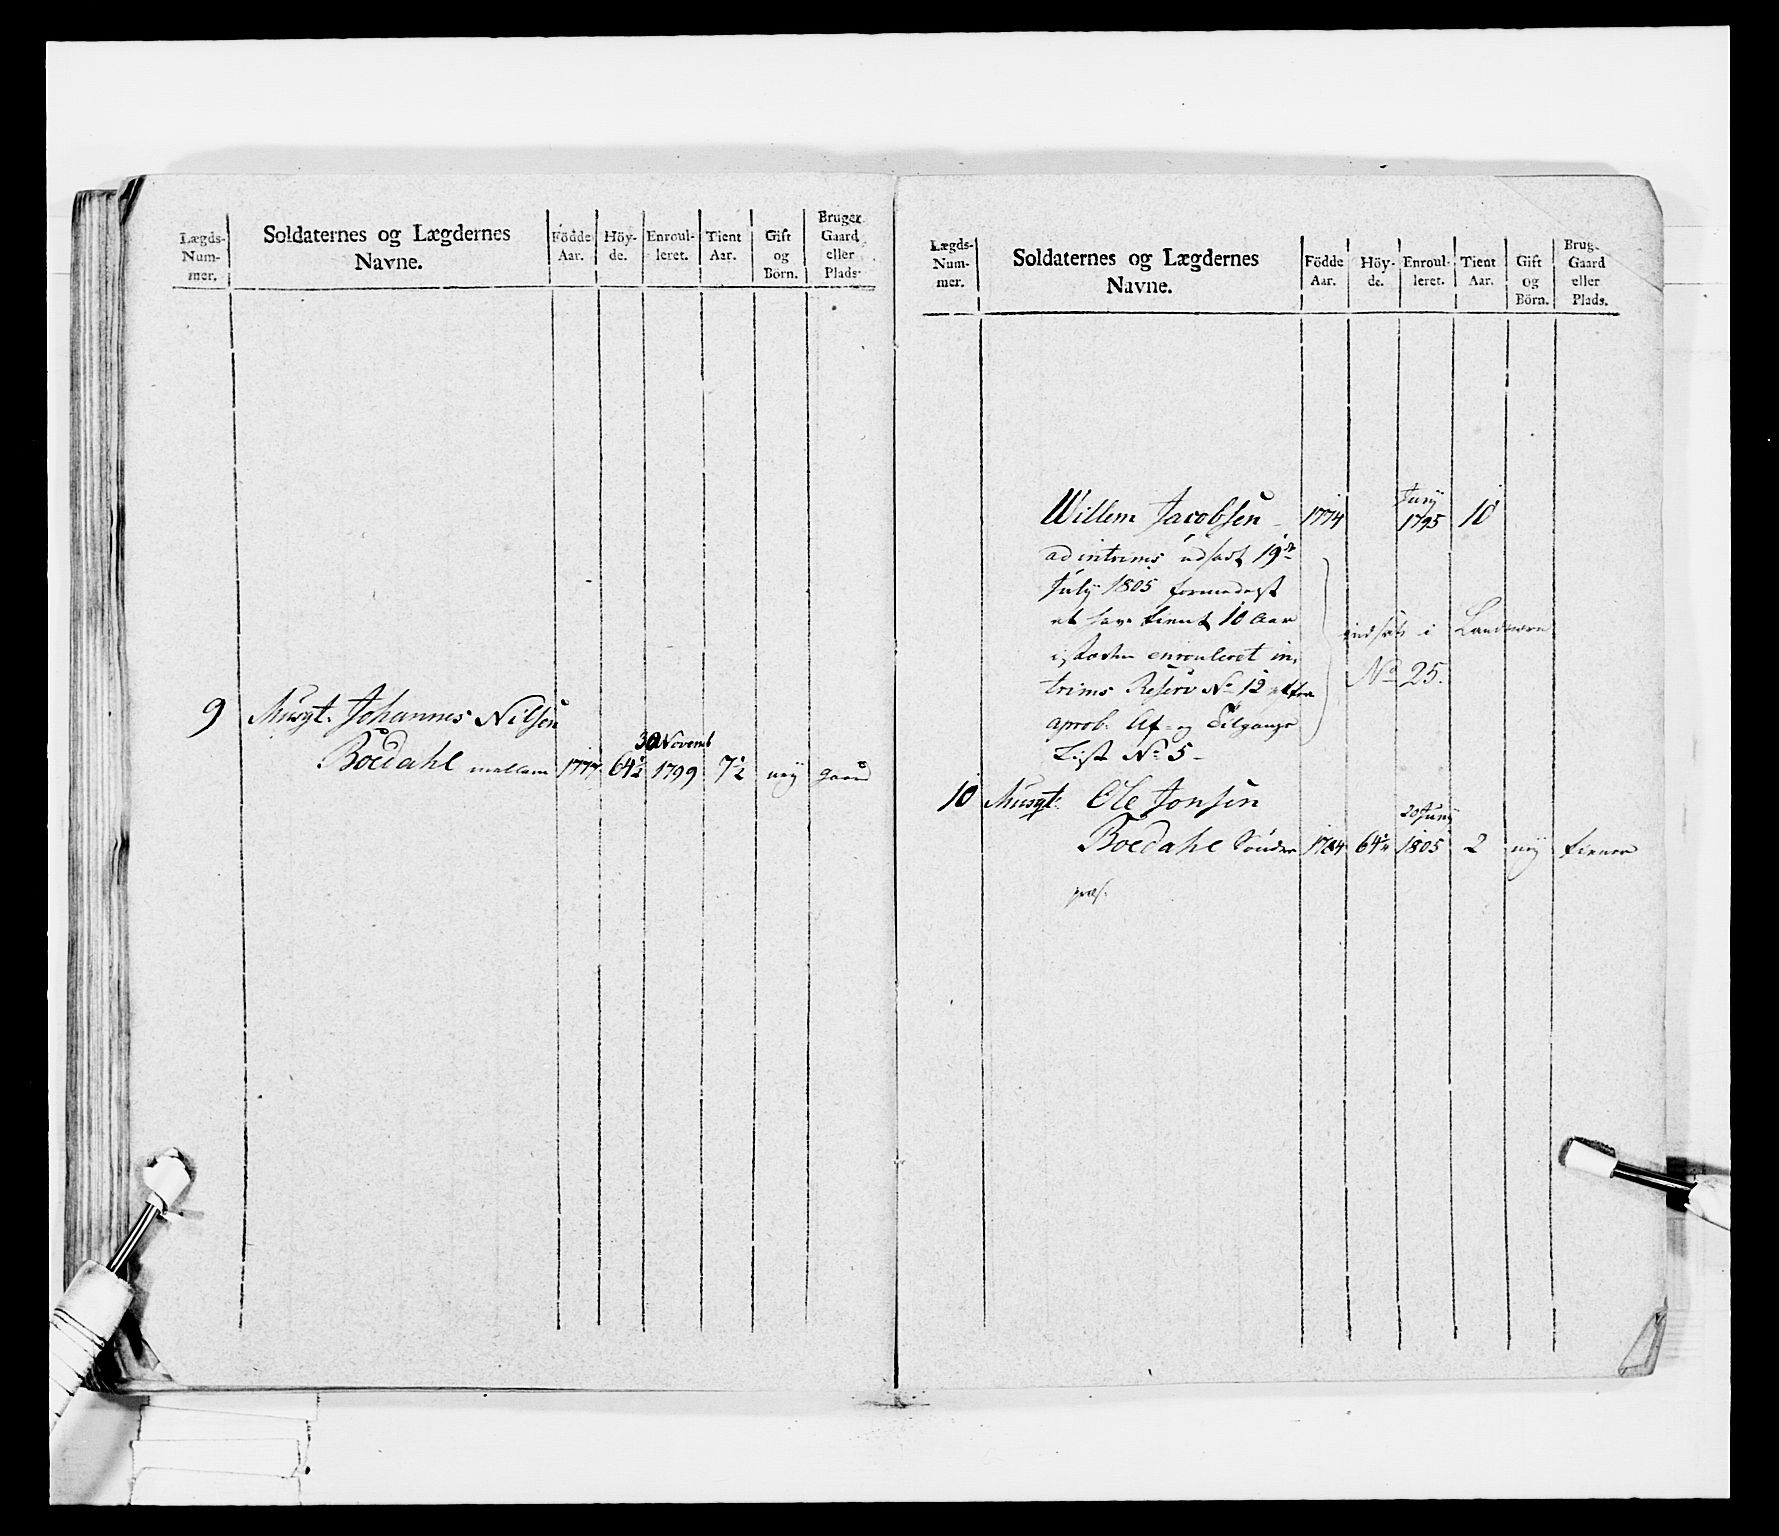 Lægds-Num-mer.
Soldaternes og Lægdernes Navne.
Födde Aar.
Höy-de.
Enroul-leret.
Tient Aar.
Gift og Börn.
Bruger Gaard eller Plads.
30 Novemb
9 Musqt. Johannes Nilsen
Boedahl mellem 1777 64½ 1799 7½ ney gaard
Lægds-Num-mer.
Soldaternes og Lægdernes Navne.
Födde Aar.
Höy-de.
Enroul-leret.
Tient Aar.
Gift og Börn.
Brug. Gaard eller Plads.
Juny
Willem Jacobsen 1774 1795 10
ad intrims udsadt 19de
July 1805 formedelst
at have tient 10 Aar
isteden enrouleret in-
trims Reserv No 12 efter
aprob. Af- og Tilgangs
List No 5
indsat i Landeværn
No 25.
10 Musqt. Ole Jonsen
20 Juny
Boedahl Sönder 1784 64 1805 2 ney tiener